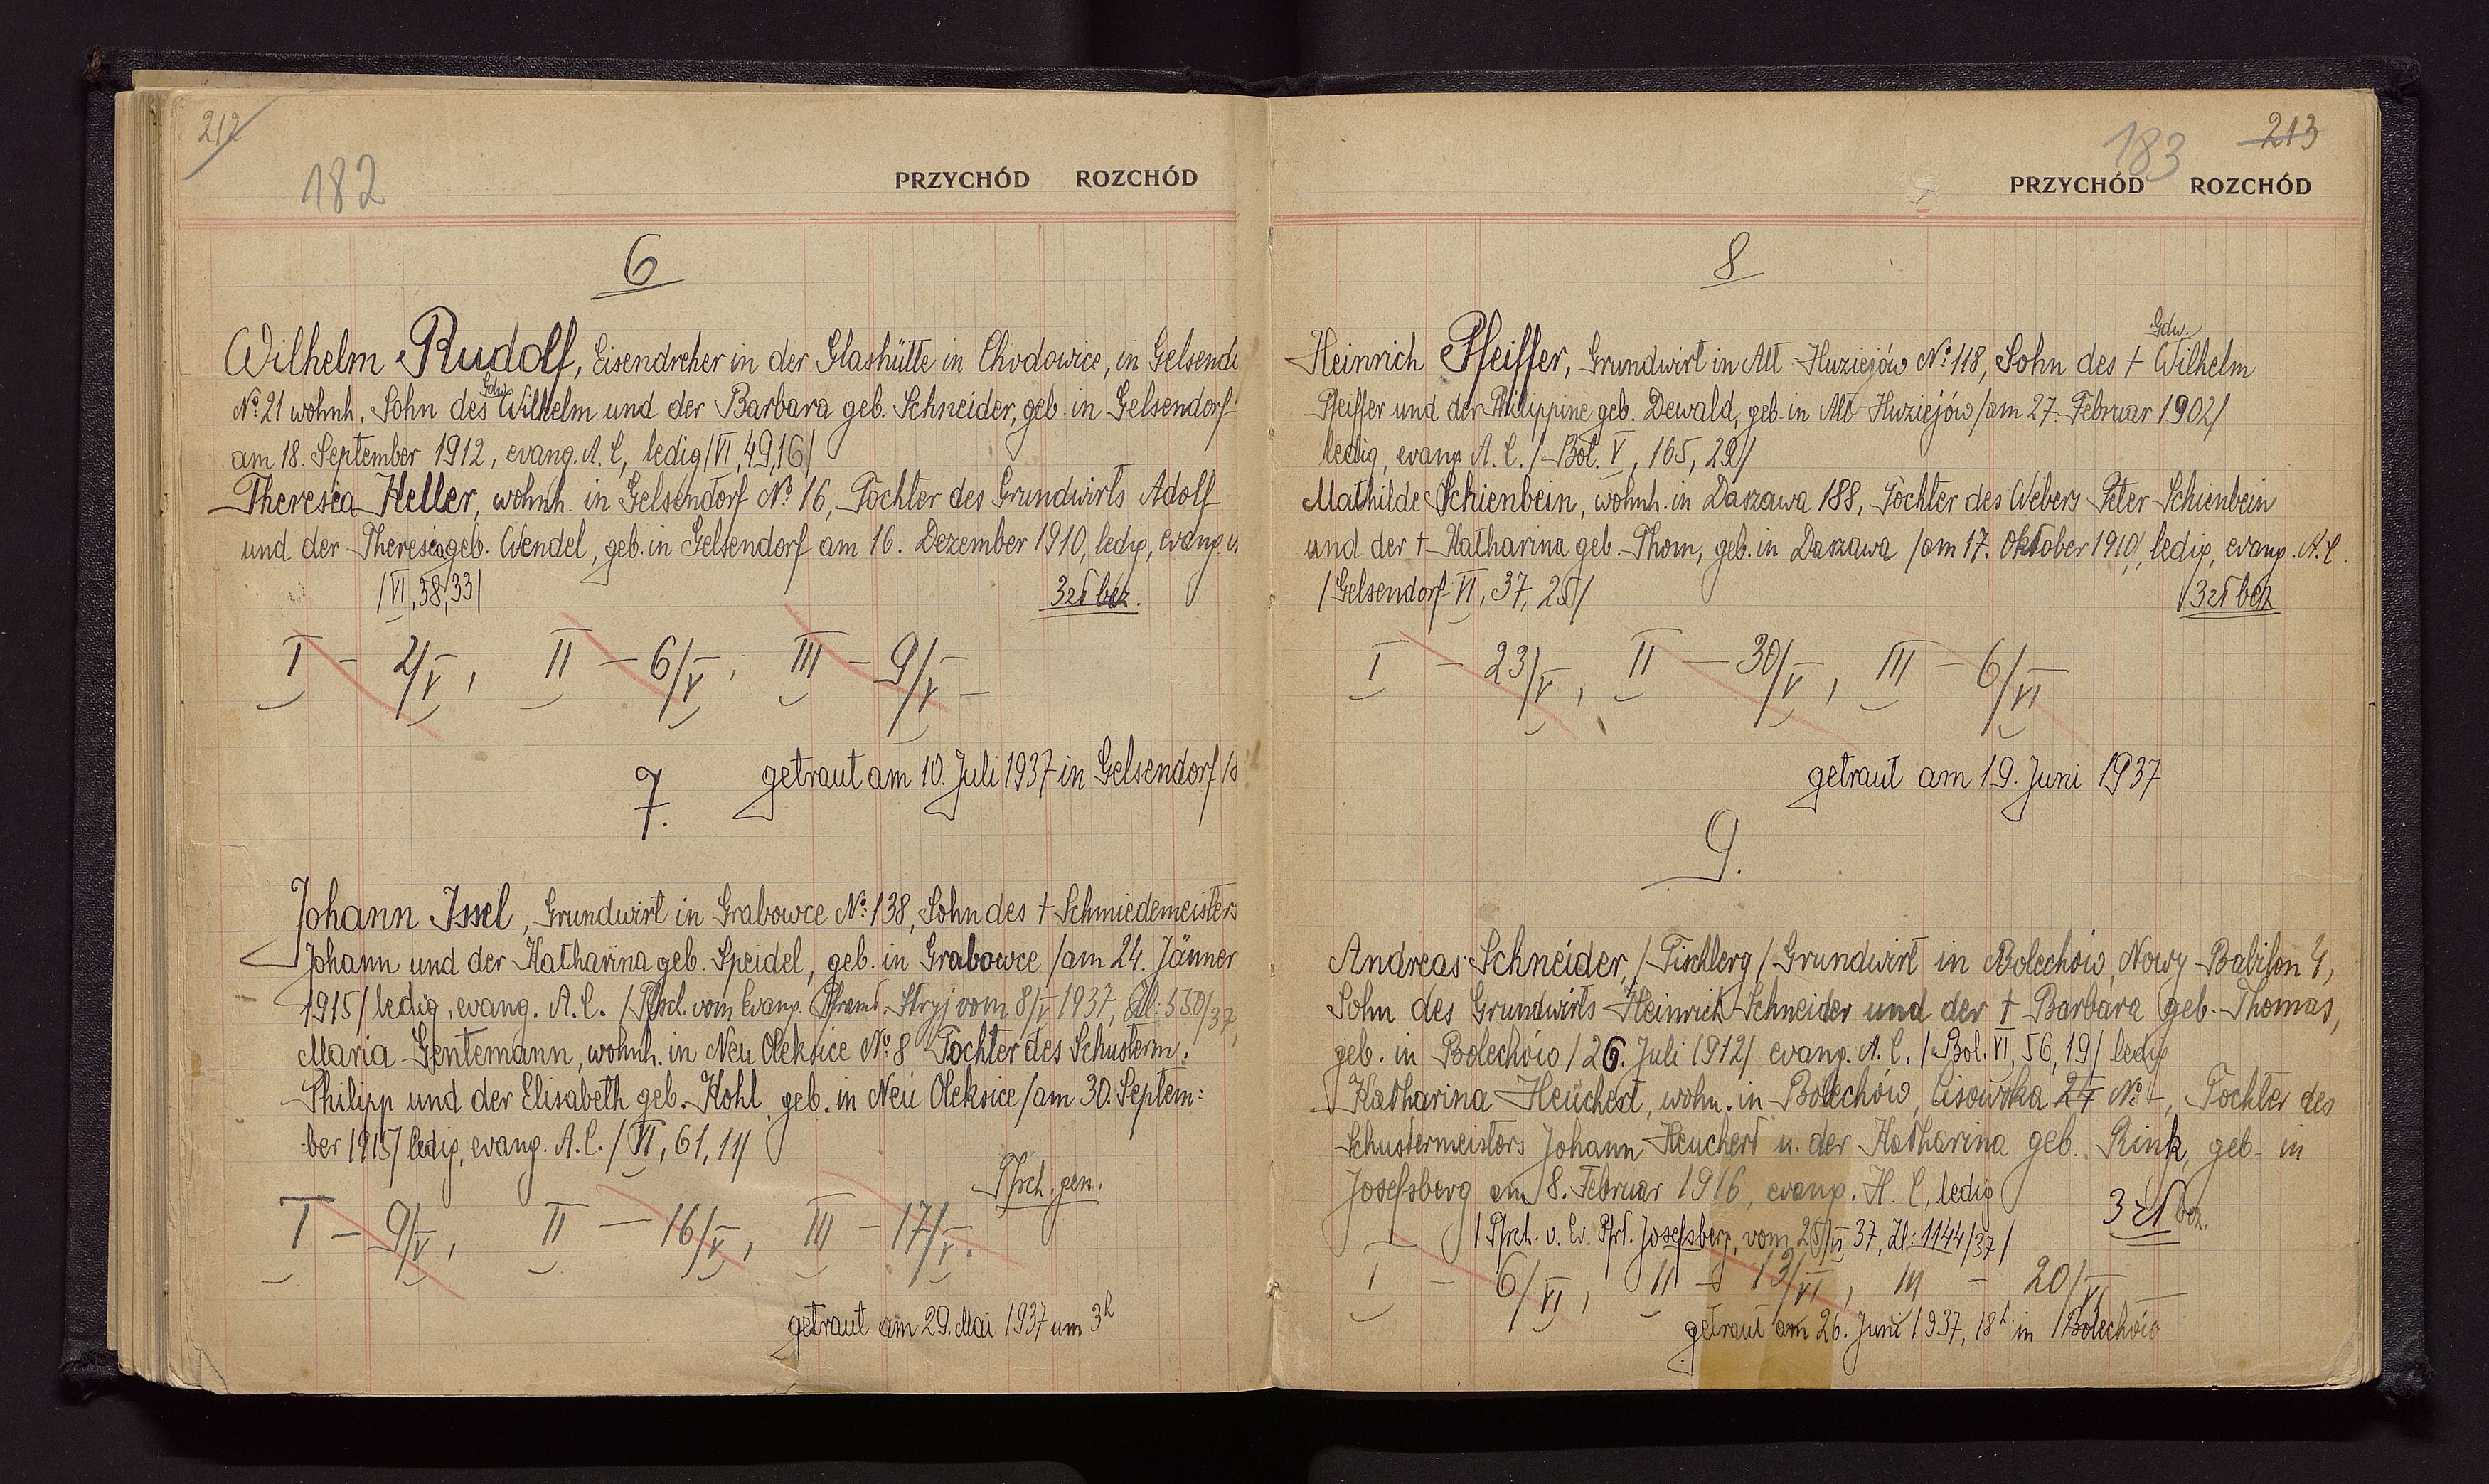 212
182
PRZYCHÓD ROZCHÓD
6
Wilhelm Rudolf, Eisendreher in der Glashütte in Chodowice, in Gelsend
Gdw.
No. 21 wohnh. Sohn des Wilhelm und der Barbara geb. Schneider, geb. in Gelsendorf
am 18. September 1912, evang. A. C, ledig /VI, 49,16/
Theresia Heller, wohnh. in Gelsendorf No. 16, Tochter des Grundwirts Adolf
und der Theresia geb. Wendel, geb. in Gelsendorf am 16. Dezember 1910, ledig, evang.
/VI, 38, 33/ 3 zł bez.
I – 2/V, II – 6/V, III – 9/V –
getraut am 10. Juli 1937 in Gelsendorf
7.
Johann Issel, Grundwirt in Grabowce No. 138, Sohn des † Schmiedemeisters
Johann und der Katharina geb. Speidel, geb. in Grabowce /am 24. Jänner
1915/ ledig, evang. A. C. / vom Evang. Stryj vom 8/V 1937, Zl: 550/37,
Maria Gentemann, wohnh. in Neu Oleksice No. 8 Tochter des Schusterm.
Philipp und der Elisabeth geb. Kohl, geb. in Neu Oleksice /am 30. Septem=
ber 1915/ ledig, evang. A. C. / VI, 61, 11/
Pfrch. gen.
I – 9/V, II – 16/V, III – 17/V.
getraut am 29. Mai 1937 um 3h
213
183
PRZYCHÓD ROZCHÓD
8
Gdw.
Heinrich Pfeiffer, Grundwirt in Alt Huziejów No. 118, Sohn des † Wilhelm
Pfeiffer und der Philippine geb. Dewald, geb. in Alt-Huziejów /am 27. Februar 1902/
ledig, evang. A. C. / Bol. V, 165, 29/
Mathilde Schienbein, wohnh. in Daszawa 188, Tochter des Webers Peter Schienbein
und der † Katharina geb. Thom, geb. in Daszawa /am 17. Oktober 1910/, ledig, evang. A. C.
/Gelsendorf VI, 37, 25/ 3 zł bez
I – 23/V, II – 30/V, III – 6/VI
getraut am 19. Juni 1937
9.
Andreas Schneider, /Tischlerg/ Grundwirt in Bolechów, Nowy Babilon 4,
Sohn des Grundwirts Heinrich Schneider und der † Barbara geb. Thomas,
geb. in Bolechów /26. Juli 1912/ evang. A. C. / Bol. VI, 56, 19/ ledig
Katharina Heuchert, wohn. in Bolechów, No. Tochter des
Schustermeisters Johann Heuchert u. der Katharina geb. Rink, geb. in
Josefsberg am 8. Februar 1916, evang. H. C, ledig
3 zł bez.
/Pfrch. v. Ev. Pfrt. Josefsberg, vom 37, Zl: 1144/37/
I – 6/VI, II – 13/VI, III – 20/VI
getraut am 26. Juni 1937, 18h in Bolechów